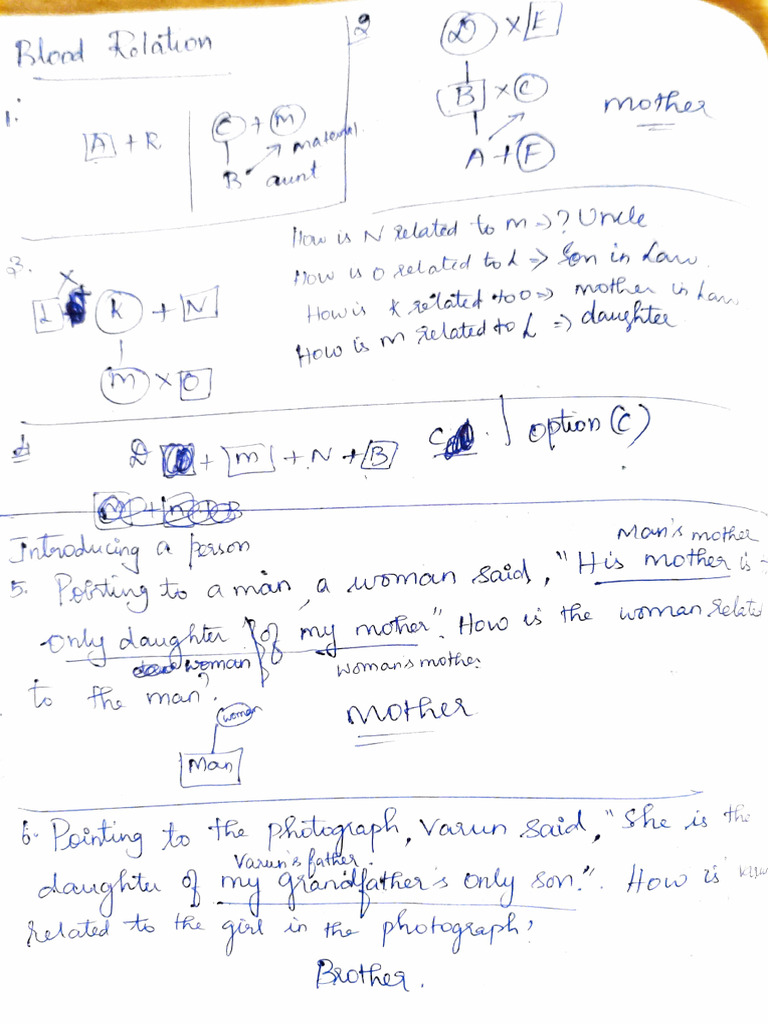 Blood Relation
1.
A + R
C + M
maternal
B aunt
2
D × E
B × C
A + F
mother
3.
×
L K + N
M × O
How is N related to m => ? Uncle
How is O related to L => Son in Law
How is K related to O => mother in Law
How is m related to L => daughter
D + m + N + B C option (C)
Introducing a person
Man's mother
5. Pointing to a man, a woman said, "His mother is
only daughter of my mother". How is the woman related
woman woman's mother
to the man?
woman
Man
Mother
6. Pointing to the photograph, Varun said, "She is the
Varun's father.
daughter of my grandfather's only son.". How is
related to the girl in the photograph?
Brother.